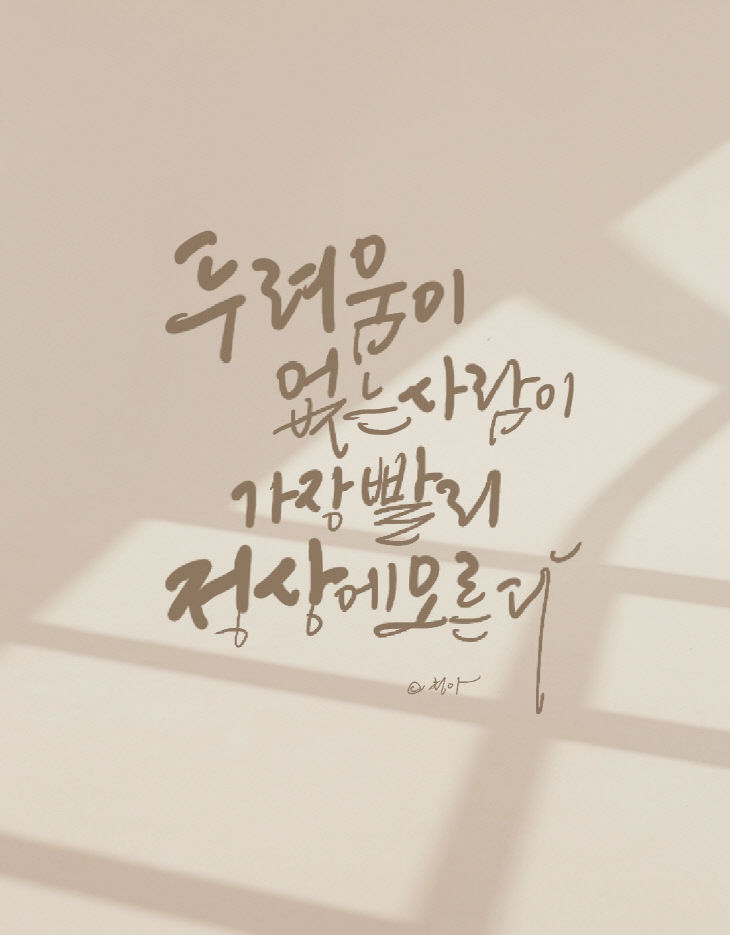 두려움이
없는사람이
가장빨리
정상에오른다